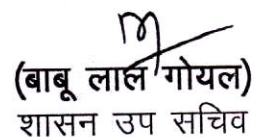 (बाबू लाल गोयल)
शासन उप सचिव